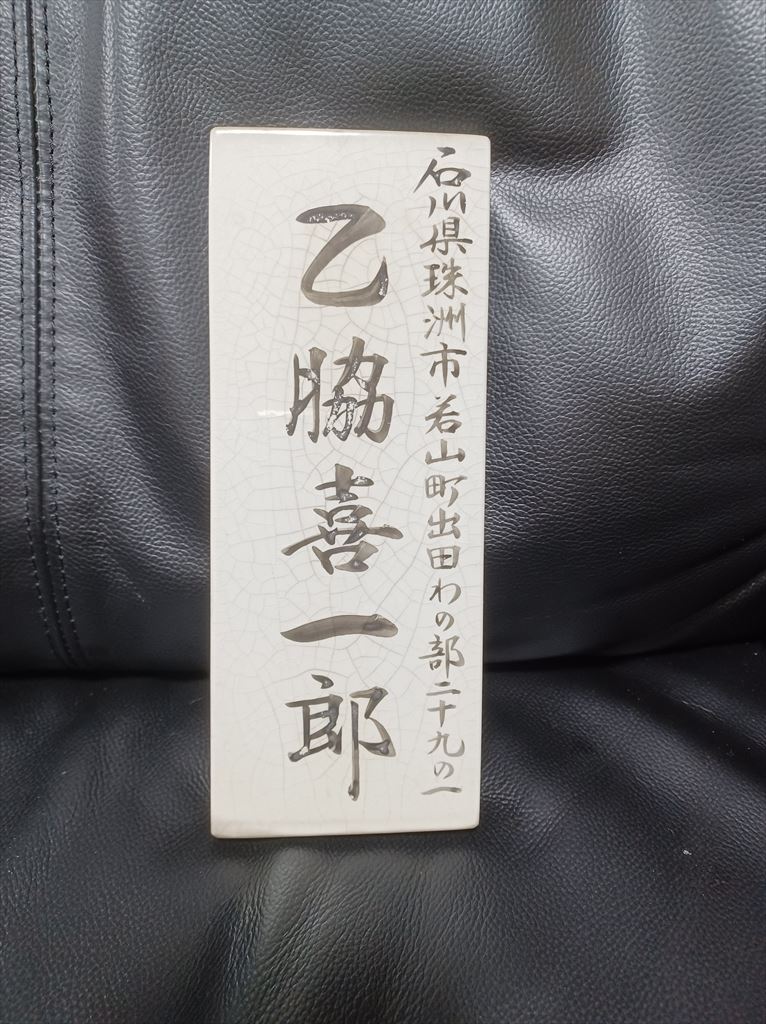 石川県珠洲市若山町出田わの部二十九の一
乙脇喜一郎